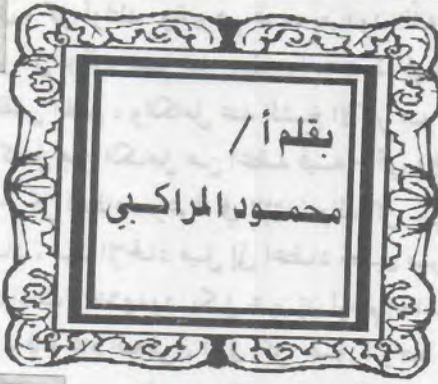 بقلم أ /
محمود المراكبي